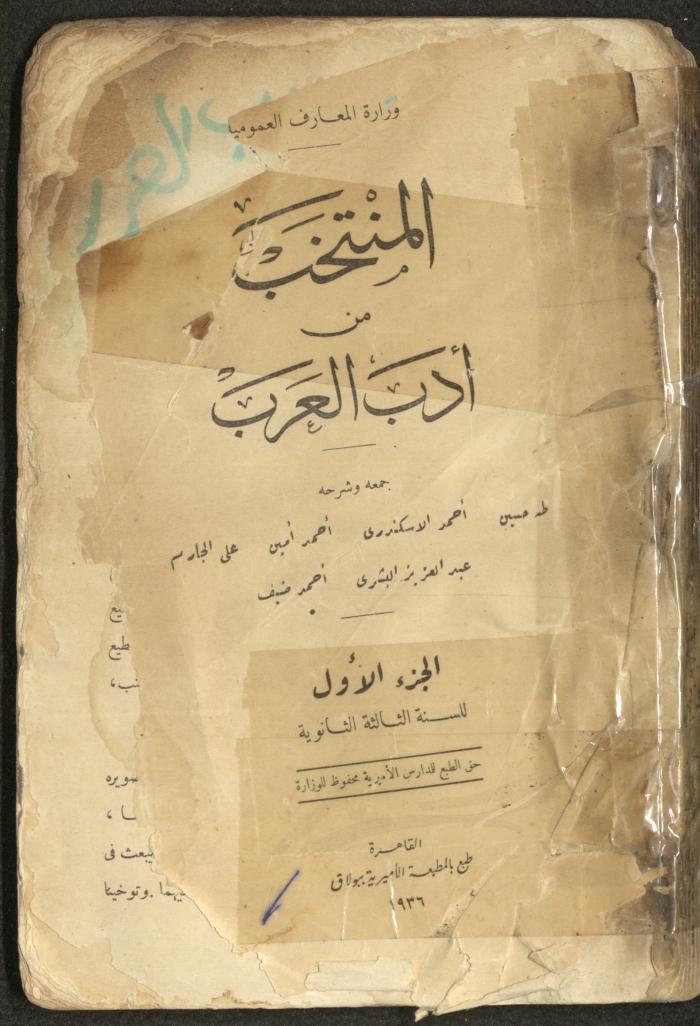 وزارة المعارف العمومية
المنتخب
من
أدب العرب
جمعه وشرحه
طه حسين أحمد الاسكندرى أحمد أمين على الجارم
عبد العزيز البشرى أحمد ضيف
الجزء الأول
للسنة الثالثة الثانوية
حق الطبع للمدارس الأميرية محفوظ للوزارة
القاهرة
طبع بالمطبعة الأميرية ببولاق
١٩٣٦
يبعث فى
وتوخينا